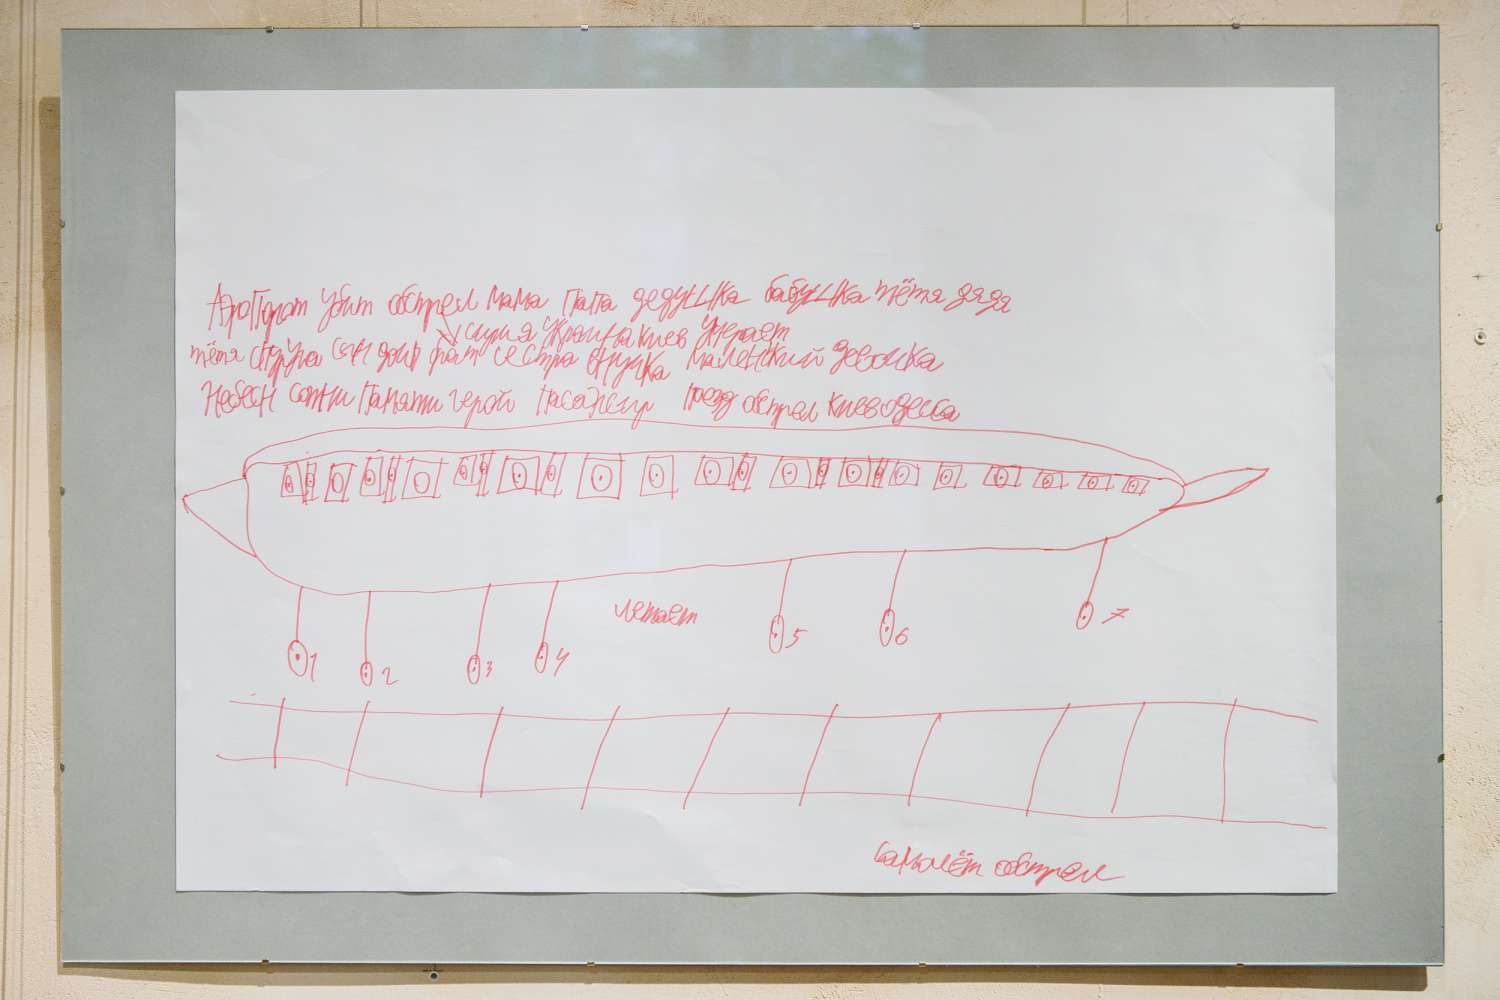 Аэропорт убит обстрел мама папа дедушка бабушка тётя дядя
Украина киев умерает
тётя брат сестра внучка маленский девочка
Небесн сотни Памяти герой Пасажир поезд обстрел киев одесса
летает
1 2 3 4 5 6 7
самолёт обстрел